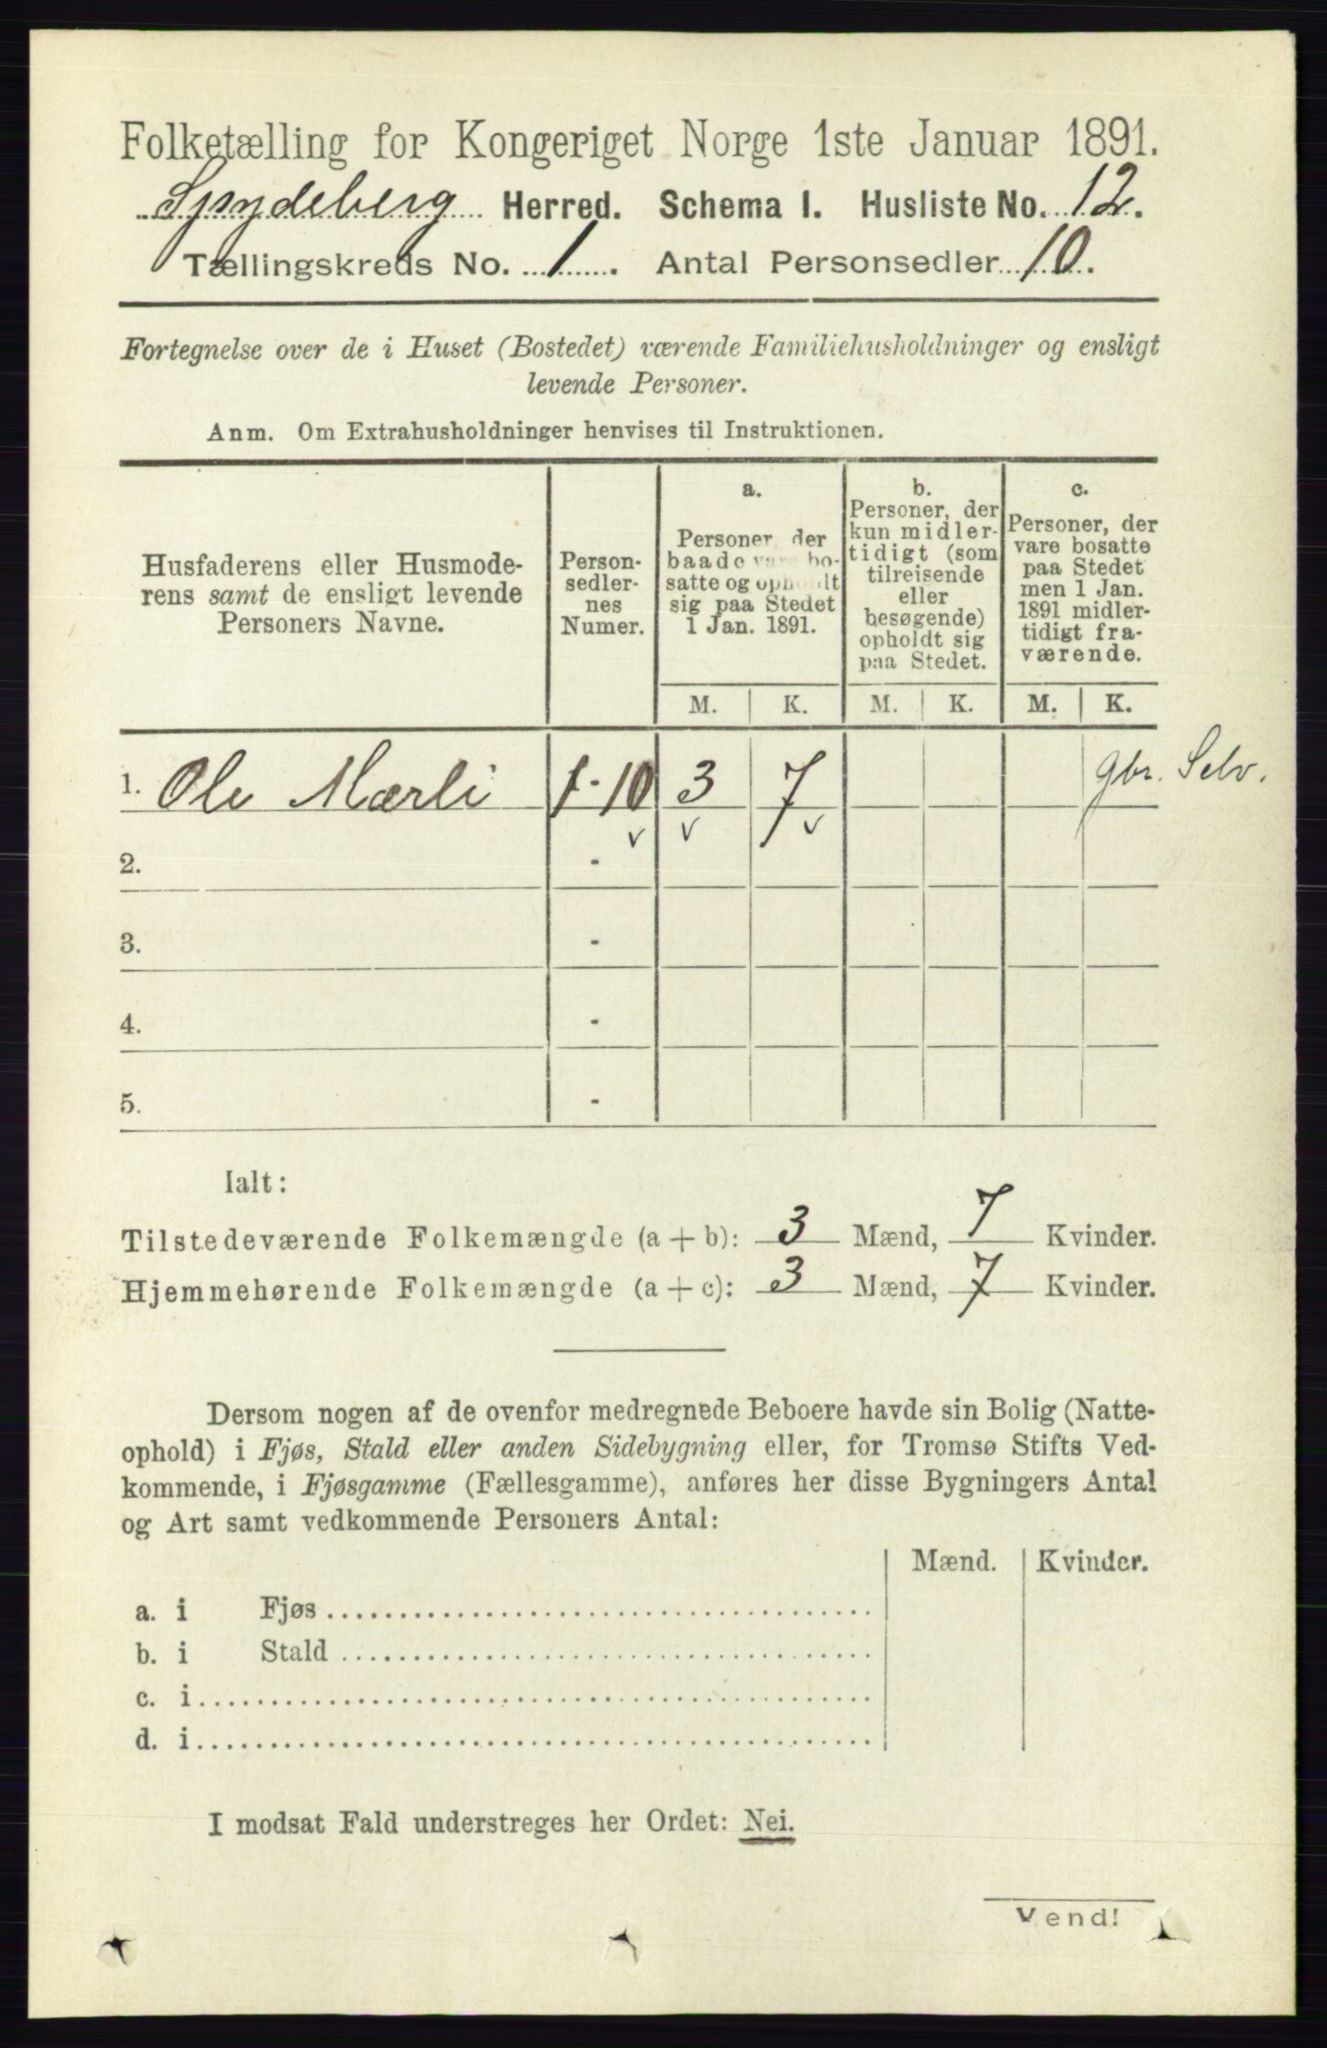 Folketælling for Kongeriget Norge 1ste Januar 1891.
Spydeberg Herred. Schema I. Husliste No. 12.
Tællingskreds No. 1. Antal Personsedler 10.
Fortegnelse over de i Huset (Bostedet) værende Familiehusholdninger og ensligt
levende Personer.
Anm. Om Extrahusholdninger henvises til Instruktionen.
Husfaderens eller Husmode-
rens samt de ensligt levende
Personers Navne.
Person-
sedler-
nes
Numer.
a.
Personer, der
baade vare bo-
satte og opholdt
sig paa Stedet
1 Jan. 1891.
b.
Personer, der
kun midler-
tidigt (som
tilreisende
eller
besøgende)
opholdt sig
paa Stedet.
c.
Personer, der
vare bosatte
paa Stedet
men 1 Jan.
1891 midler-
tidigt fra-
værende.
M. K. M. K. M. K.
1. Ole Mærli 1-10 3 7 gbr. Selv.
v v v
2. -
3. -
4. -
5. -
Ialt:
Tilstedeværende Folkemængde (a + b): 3 Mænd, 7 Kvinder.
Hjemmehørende Folkemængde (a + c): 3 Mænd, 7 Kvinder.
Dersom nogen af de ovenfor medregnede Beboere havde sin Bolig (Natte-
ophold) i Fjøs, Stald eller anden Sidebygning eller, for Tromsø Stifts Ved-
kommende, i Fjøsgamme (Fællesgamme), anføres her disse Bygningers Antal
og Art samt vedkommende Personers Antal:
Mænd. Kvinder.
a. i Fjøs
b. i Stald
c. i
d. i
I modsat Fald understreges her Ordet: Nei.
Vend!